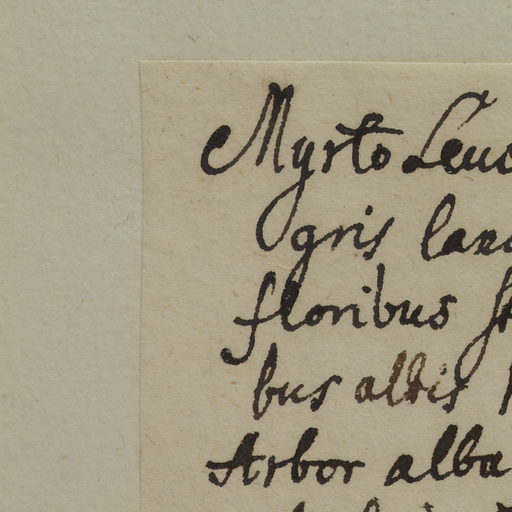 Myrto Leuc
gris lanc
floribus
bus albis
Arbor alba